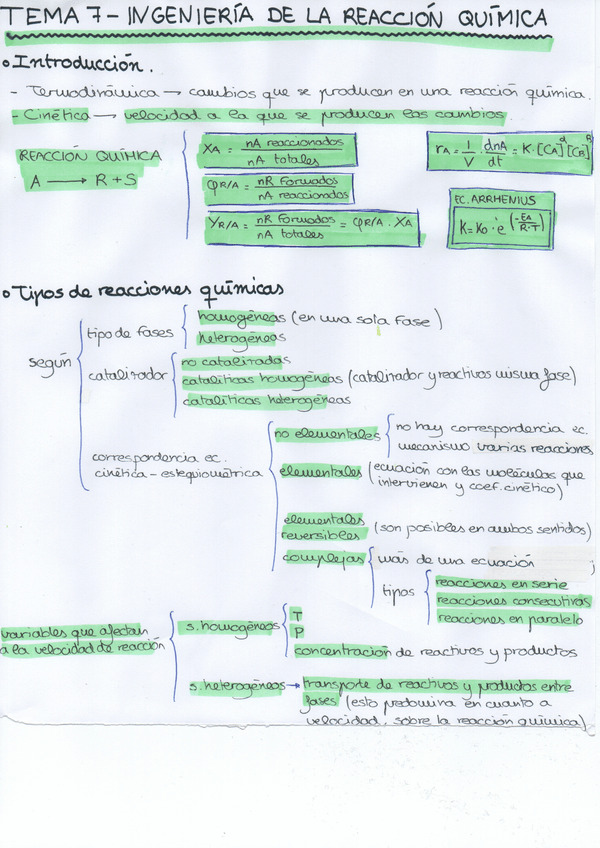 TEMA 7 - INGENIERÍA DE LA REACCIÓN QUÍMICA
• Introducción.
- Termodinámica → cambios que se producen en una reacción química.
- Cinética → velocidad a la que se producen los cambios
REACCIÓN QUÍMICA
A → R + S
XA = nA reaccionados / nA totales
φR/A = nR Formados / nA reaccionados
YR/A = nR Formados / nA totales = φR/A · XA
rA = 1/V · dnA/dt = K·[CA]^α [CB]^B
EC. ARRHENIUS
K = Ko · e^(-EA/R·T)
• Tipos de reacciones químicas
según
tipo de fases
homogéneas (en una sola fase)
heterogéneas
catalizador
no catalizadas
catalíticas homogéneas (catalizador y reactivos misma fase)
catalíticas heterogéneas
correspondencia ec.
cinética - estequiométrica
no elementales
no hay correspondencia ec.
mecanismo varias reacciones
elementales (ecuación con las moléculas que
intervienen y coef. cinético)
elementales
reversibles (son posibles en ambos sentidos)
complejas
más de una ecuación ;
tipos
reacciones en serie
reacciones consecutivas
reacciones en paralelo
variables que afectan
a la velocidad de reacción
s. homogéneos
T
P
concentración de reactivos y productos
s. heterogéneos → transporte de reactivos y productos entre
fases (esto predomina en cuanto a
velocidad, sobre la reacción química)